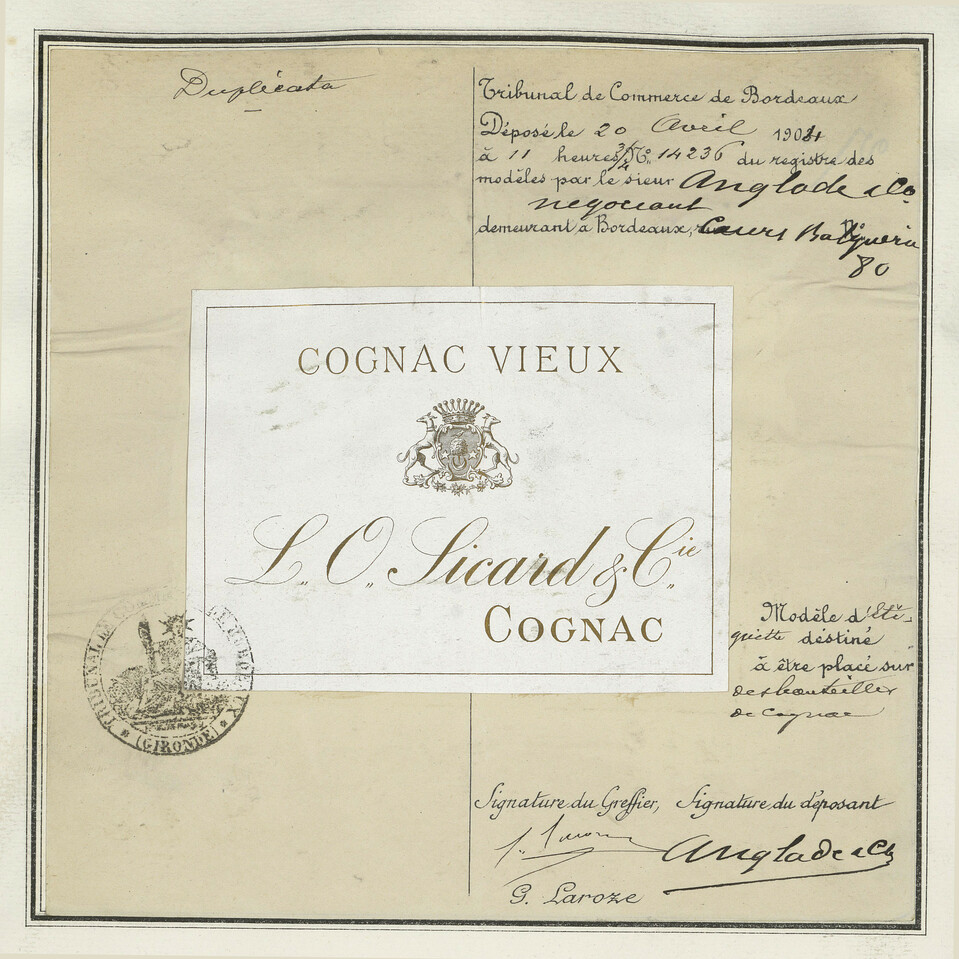 Duplicata
Tribunal de Commerce de Bordeaux
Déposé le 20 Avril 190
à 11 heures 3/4 No. 14236 du registre des
modèles par le sieur Anglade & Co.
négociant
demeurant à Bordeaux, Cours Balguerie
No 80
COGNAC VIEUX
L. O. Sicard & Cie
COGNAC
TRIBUNAL DE COMMERCE DE BORDEAUX
(GIRONDE)
Modèle d'éti-
quette destiné
à être placé sur
des bouteilles
de cognac
Signature du Greffier, Signature du déposant
Anglade & Co
G. Laroze